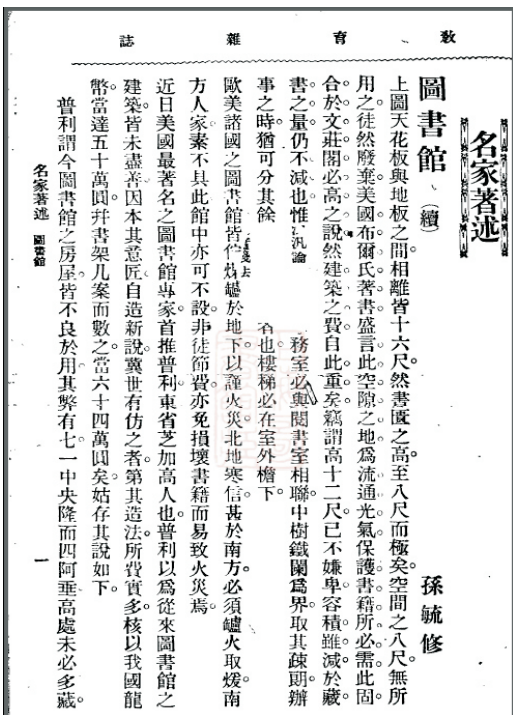 教育雜誌
名家著述
圖書館(續) 孫毓修
上圖天花板與地板之間相離皆十六尺。然書匱之高至八尺而極矣。空間之八尺無所
用之。徒然廢棄。美國布爾氏著書盛言此空隙之地爲流通光氣保護書籍所必需。此固
合於文莊閣必高之說。然建築之費自此重矣。竊謂高十二尺已不嫌卑。容積雖減於藏
書之量仍不減也。惟汎論 務室必與閱書室相聯。中樹鐵闌爲界。取其疎朗。辦
事之時猶可分其餘 也。樓梯必在室外檐下。
歐美諸國之圖書館皆 罏於地下。以謹火災。北地寒信甚於南方。必須罏火取煖。南
方人家素不具此。館中亦可不設。非徒節費。亦免損壞書籍而易致火災焉。
近日美國最著名之圖書館專家。首推普利東省芝加高人也。普利以爲從來圖書館之
建築皆未盡善。因本其意匠。自造新說。冀世有仿之者。第其造法所費實多。核以我國龍
幣。當達五十萬圓。幷書架几案而數之。當六十四萬圓矣。姑存其說如下。
普利謂今圖書館之房屋。皆不良於用。其弊有七。一中央隆而四阿垂。高處未必多藏。
名家著述 圖書館 一